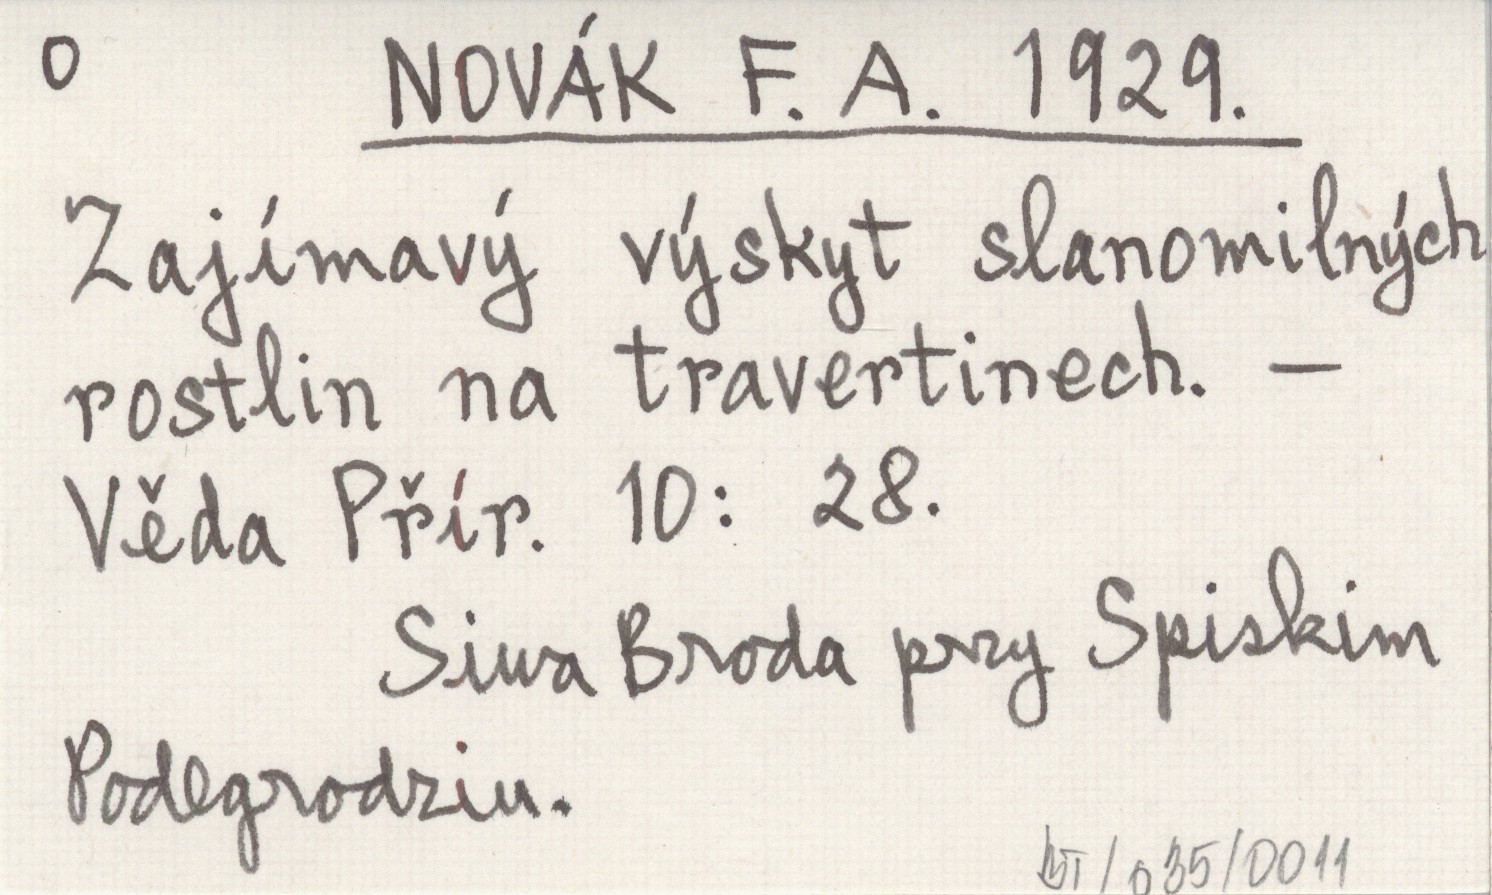 O NOVÁK F. A. 1929.
Zajímavý výskyt slanomilných
rostlin na travertinech. —
Věda Přír. 10: 28.
Siwa Broda przy Spiskim
Podegrodziu.
BT/035/0011